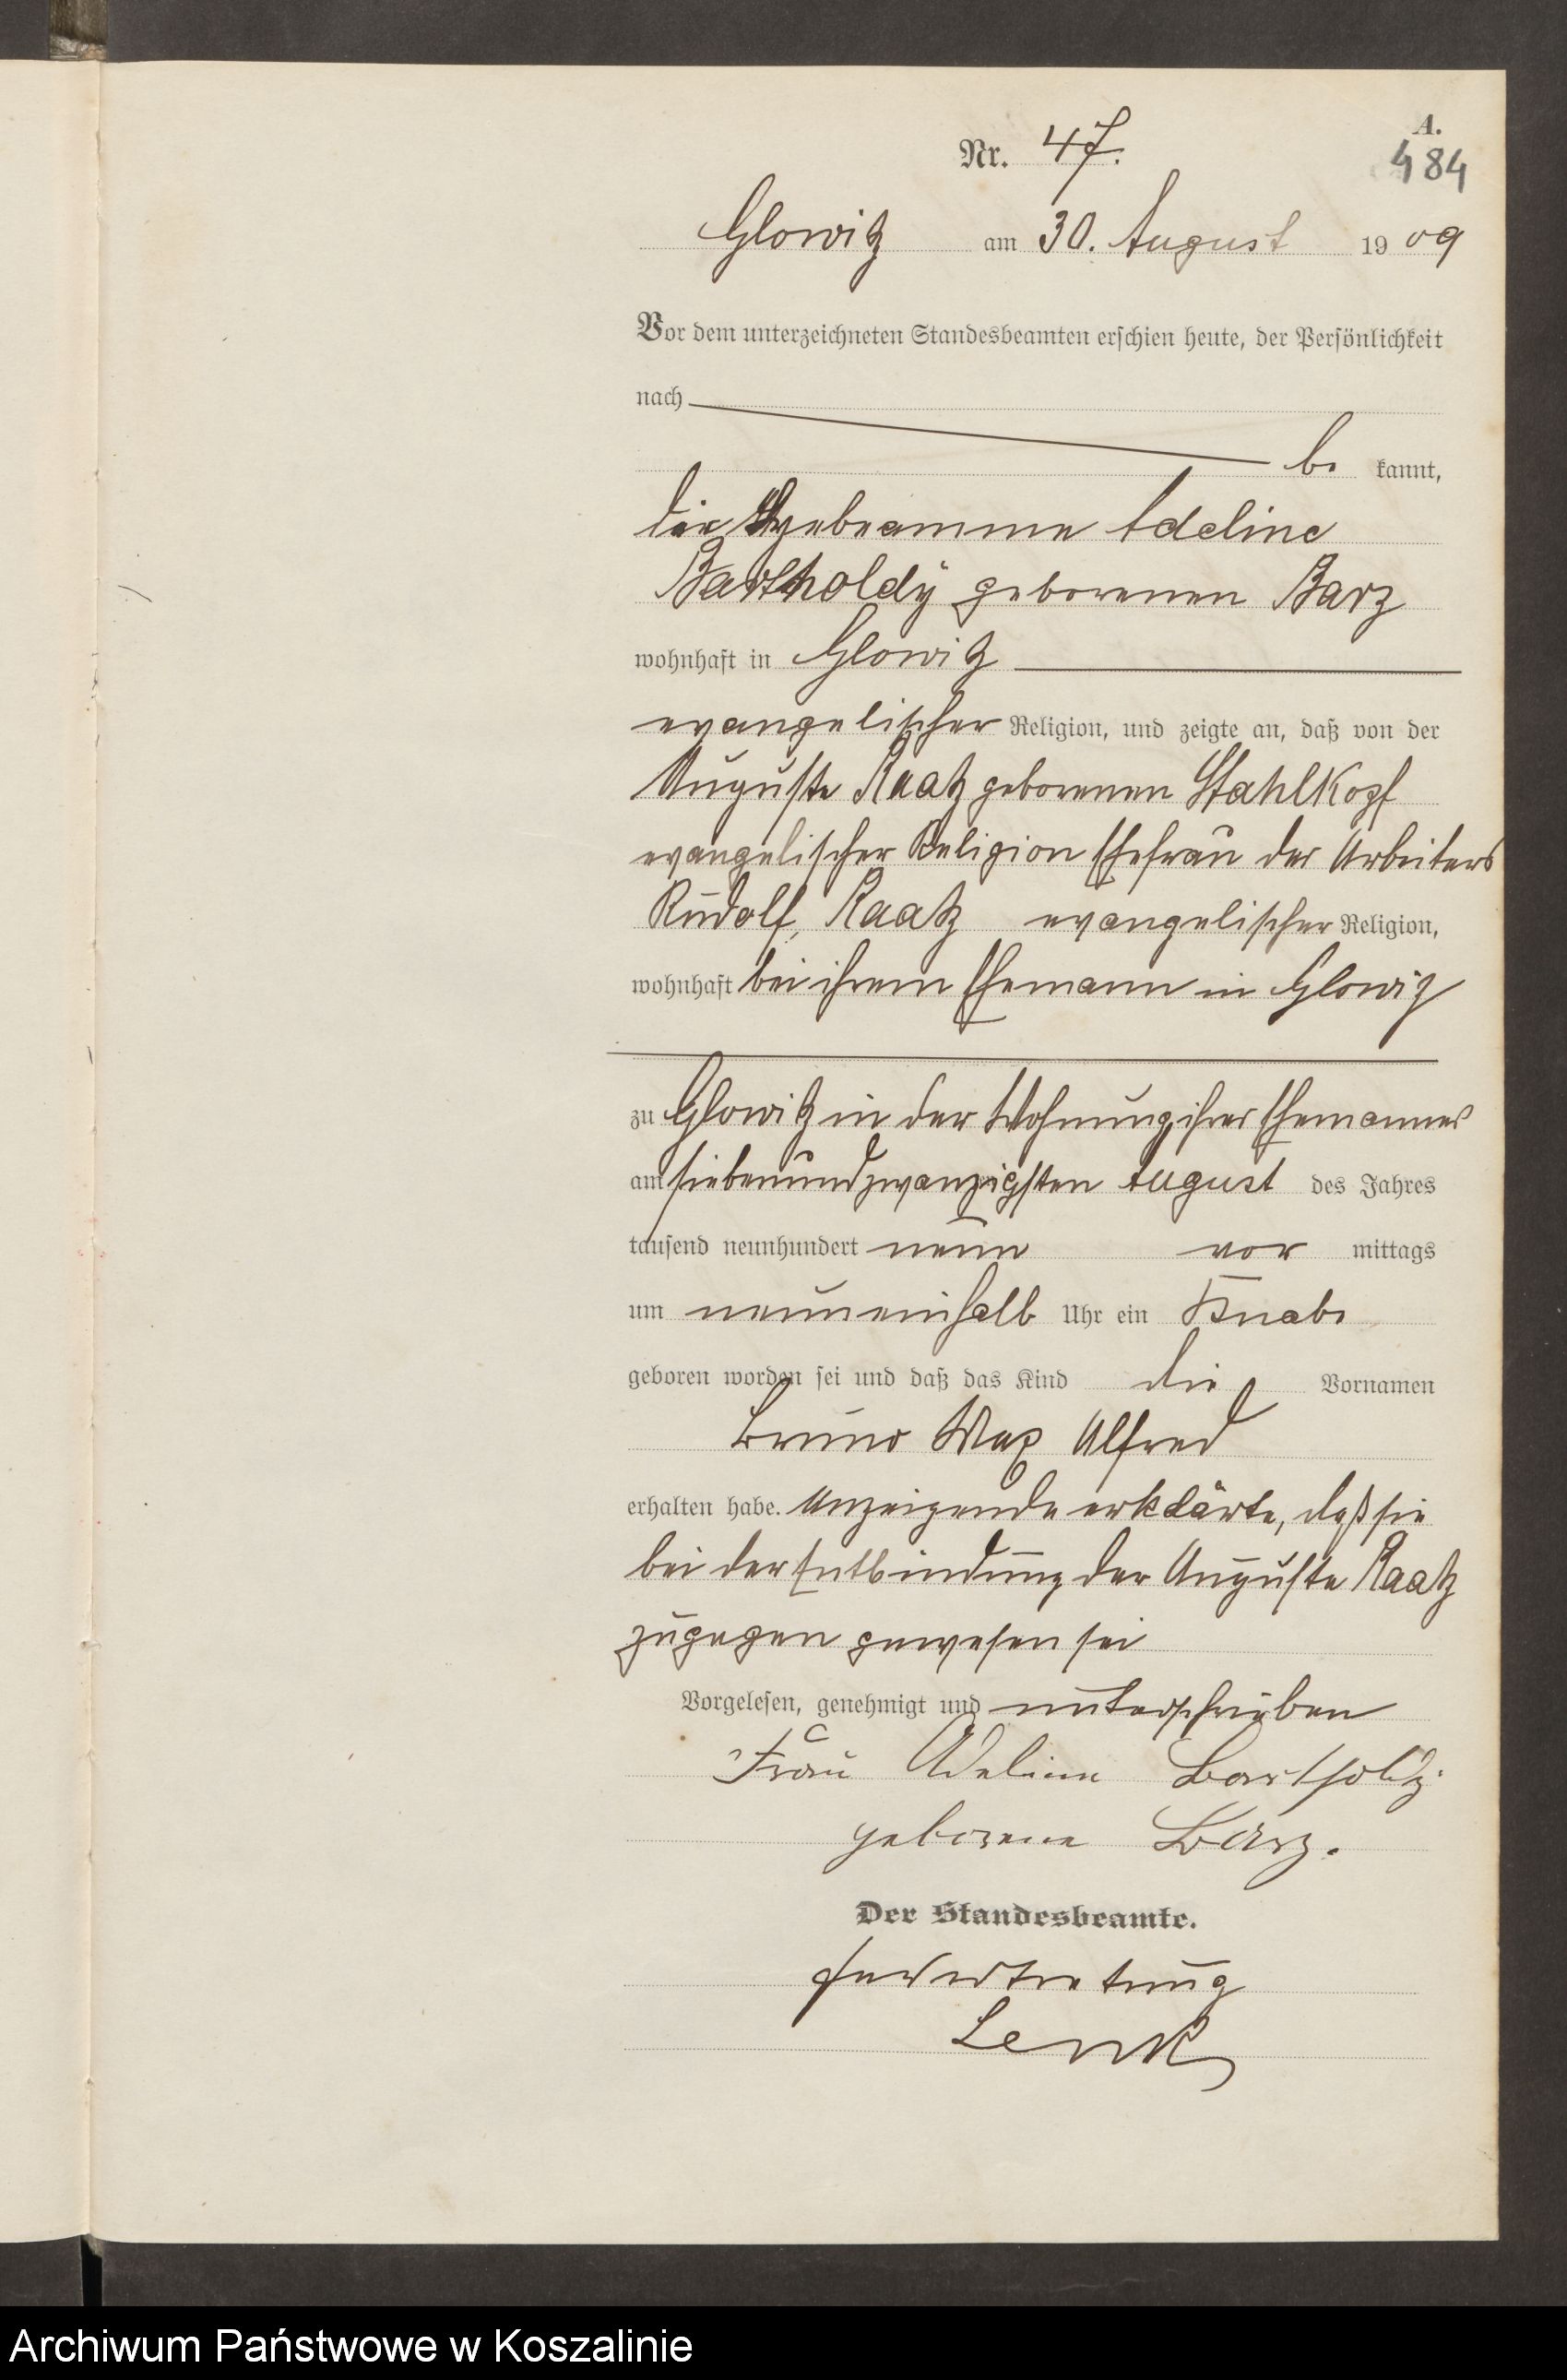 A.
Nr. 47.
484
Glowitz am 30. August 1909
Vor dem unterzeichneten Standesbeamten erschien heute, der Persönlichkeit
nach
be kannt,
die Hebeamme Adeline
Bartholdÿ geborenen Barz
wohnhaft in Glowitz
evangelischer Religion, und zeigte an, daß von der
Auguste Raatz geborenen Stahlkopf
evangelischer Religion Ehefrau des Arbeiters
Rudolf Raatz evangelischer Religion,
wohnhaft bei ihrem Ehemann in Glowitz
zu Glowitz in der Wohnung ihres Ehemannes
am siebenundzwanzigsten August des Jahres
tausend neunhundert neun vor mittags
um neuneinhalb Uhr ein Knabe
geboren worden sei und daß das Kind die Vornamen
Bruno Max Alfred
erhalten habe. Anzeigende erklärte, daß sie
bei der Entbindung der Auguste Raatz
zugegen gewesen sei
Vorgelesen, genehmigt und unterschrieben
Frau Adeline Bartholdy
geborene Barz.
Der Standesbeamte.
In Vertretung
Lenk
Archiwum Państwowe w Koszalinie